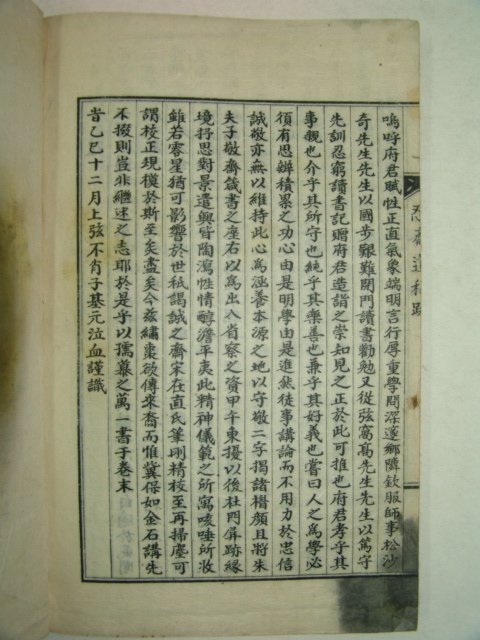 嗚呼府君賦性正直氣象端明言行厚重學問深邃鄉隣欽服師事松沙
奇先生先生以國步艱難閉門讀書勸勉又從弦窩高先生先生以篤守
先訓忍窮讀書記贈府君造詣之崇知見之正於此可推也府君孝乎其
事親也介乎其所守也純乎其樂善也兼乎其好義也嘗曰人之爲學必
須有思辨積累之功心由是明學由是進然徒事講論而不用力於忠信
誠敬亦無以維持此心爲涵養本源之地以守敬二字揭諸楣顔且將朱
夫子敬齋箴書之座右以爲出入省察之資甲午東擾以後杜門屏跡緣
境抒思對景遣興皆陶瀉性情醇澹平夷此精神儀範之所寓咳唾所收
雖若零星猶可影響於世秪謁誠之齋宋在直氏筆刪精校至再掃塵可
謂校正規模於斯至矣盡矣今玆繡棗欲傳來裔而惟冀保如金石講先
不掇則豈非繼述之志耶於是乎以孺慕之萬一書于卷末
旹乙巳十二月上弦不肖子基元泣血謹識
遺稿跋